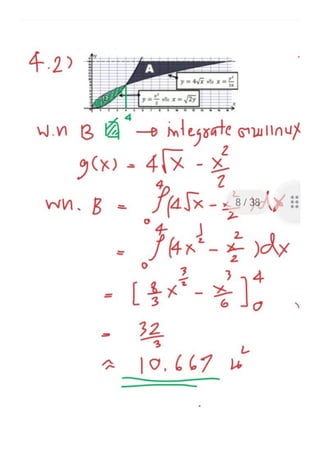 4.2)
A
y = 4√x หรือ x = y²/16
y = x²/2 หรือ x = √2y
4
พ.ท B → integrate ตามแกนx
g(x) = 4√x - x²/2
พท. B = ∫₀⁴(4√x - x²/2)dx
8 / 38
= ∫₀⁴(4x^½ - x²/2)dx
= [8/3 x^(3/2) - x³/6]₀⁴
= 32/3
≈ 10.667 น²